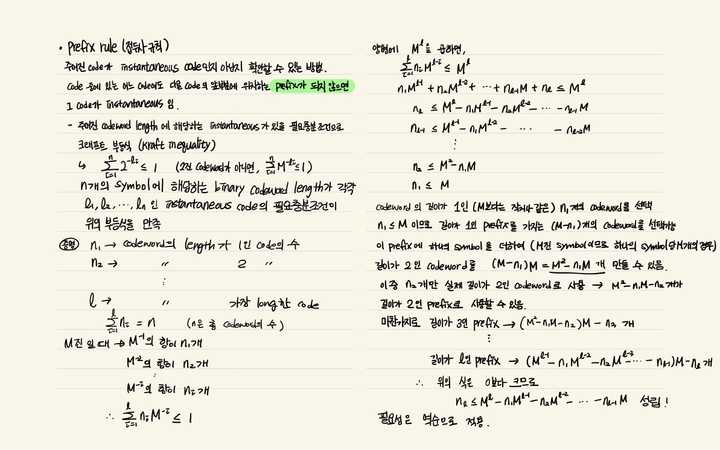 • prefix rule (접두사 규칙)
주어진 code가 instantaneous code인지 아닌지 확인할 수 있는 방법.
code 중에 있는 어느 code도 다른 code의 앞부분에 위치하는 prefix가 되지 않으면
그 code가 instantaneous 임.
- 주어진 codeword length에 해당하는 instantaneous가 있을 필요충분조건으로
크래프트 부등식 (kraft inequality)
↳ Σ_{i=1}^{n} 2^{-l_i} ≤ 1 (2진 codeword가 아니면, Σ_{i=1}^{n} M^{-l_i} ≤ 1)
n개의 symbol에 해당하는 binary codeword length가 각각
l₁, l₂, ⋯, lₙ 인 instantaneous code의 필요충분조건이
위의 부등식을 만족
증명) n₁ → codeword의 length가 1인 code의 수
n₂ → 〃 2 〃
⋮
l → 〃 가장 long한 code
Σ_{i=1}^{l} nᵢ = n (n은 총 codeword의 수)
M진 일 때 → M⁻¹의 항이 n₁개
M⁻²의 항이 n₂개
⋮
M⁻ⁱ의 항이 nᵢ개
∴ Σ_{i=1}^{l} nᵢM⁻ⁱ ≤ 1
양변에 M^l을 곱하면,
Σ_{i=1}^{l} nᵢM^{l-i} ≤ M^l
n₁M^{l-1} + n₂M^{l-2} + ⋯ + n_{l-1}M + n_l ≤ M^l
n_l ≤ M^l - n₁M^{l-1} - n₂M^{l-2} - ⋯ - n_{l-1}M
n_{l-1} ≤ M^{l-1} - n₁M^{l-2} - ⋯ - n_{l-2}M
⋮
n₂ ≤ M² - n₁M
n₁ ≤ M
codeword의 길이가 1인 (M보다는 작거나 같은) n₁개의 codeword를 선택
n₁ ≤ M 이므로 길이가 1인 prefix를 가지는 (M-n₁)개의 codeword를 선택가능
이 prefix에 하나의 symbol을 더하여 (M진 symbol이므로 하나의 symbol당 M개의 경우)
길이가 2인 codeword를 (M-n₁)M = M² - n₁M 개 만들 수 있음.
이 중 n₂개만 실제 길이가 2인 codeword로 사용 → M² - n₁M - n₂ 개가
길이가 2인 prefix로 사용할 수 있음.
마찬가지로 길이가 3인 prefix → (M² - n₁M - n₂)M - n₃ 개
⋮
길이가 l인 prefix → (M^{l-1} - n₁M^{l-2} - n₂M^{l-3} - ⋯ - n_{l-1})M - n_l 개
∴ 위의 식은 0보다 크므로
n_l ≤ M^l - n₁M^{l-1} - n₂M^{l-2} - ⋯ - n_{l-1}M 성립!
필요성은 역순으로 적용.